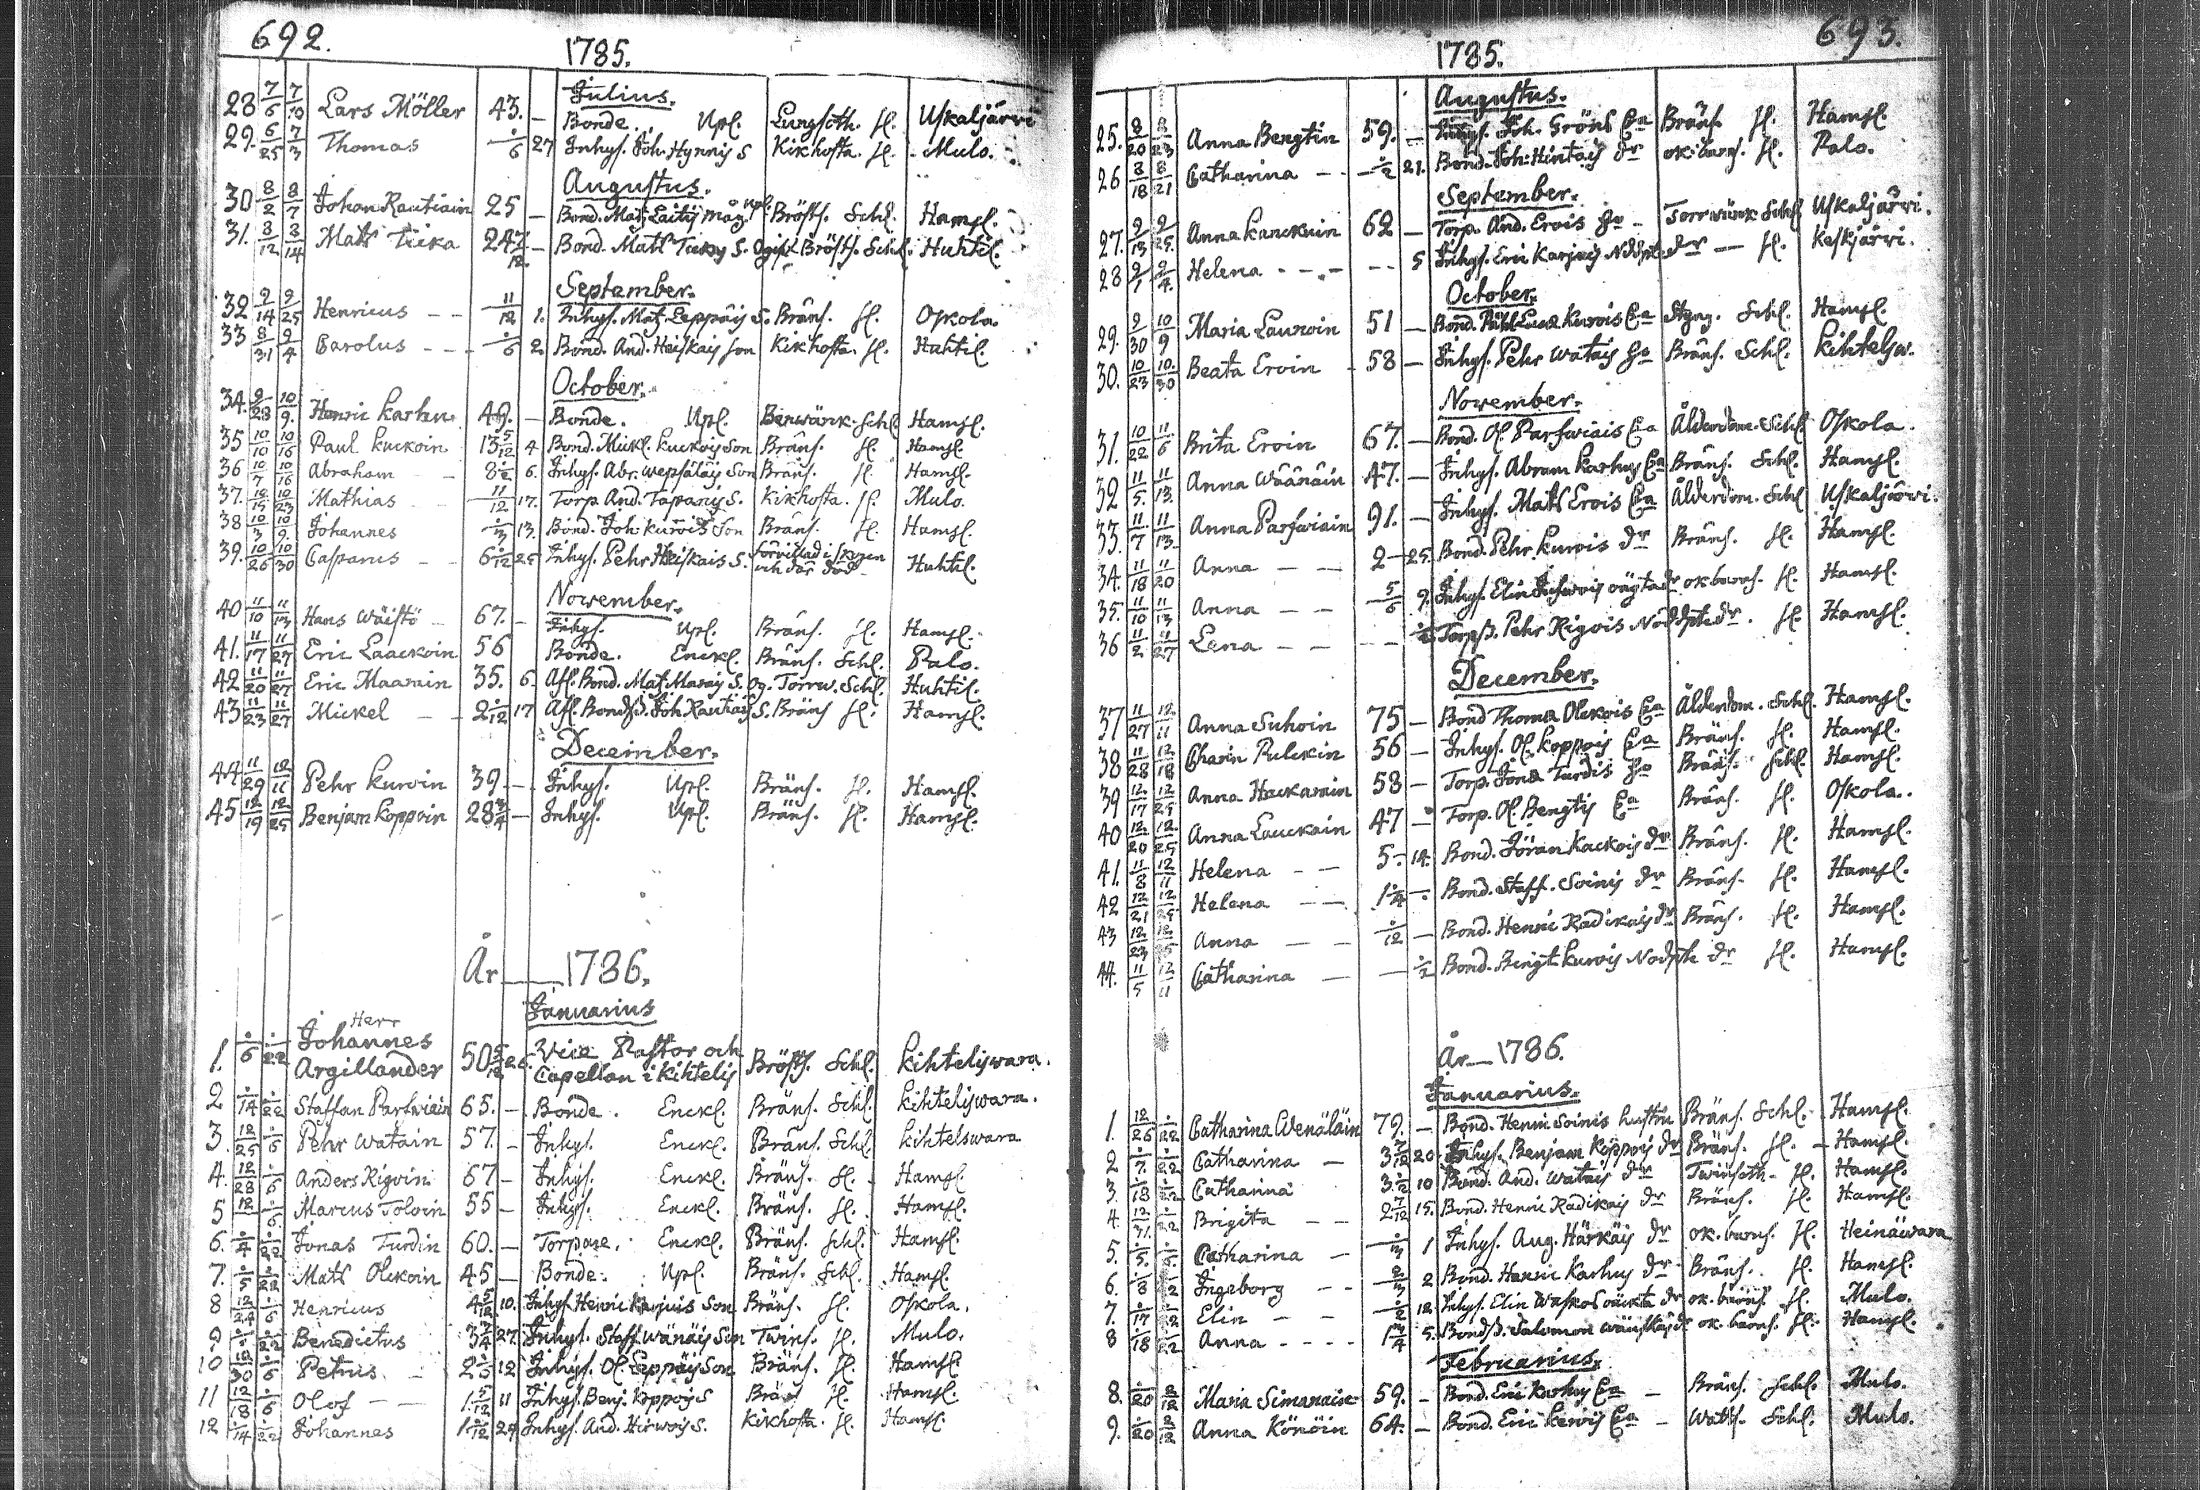 692.
1785.
Julius.
28 7/6 7/10 Lars Möller 43. – Bonde. Upl. Lungsoth. sl. Uskaljärvi
29. 6/25 7/3 Thomas ./6 27 Inhys. Joh. Hynnis S Kikhosta. sl. Mulo.
Augustus.
30 8/2 8/7 Johan Rautiain 25 – Bond. Mats Laitis Måg. Upl. Bröstf. Schl. Hamsl.
31. 8/12 8/14 Mats Tiika 24 7/12 – Bond. Mats Tiikas S. Ogift Bröstf. Schl. Huhtil.
September.
32 9/14 9/25 Henricus – – 11/12 1. Inhys. Mats Leppäis S. Bränf. sl. Oskola.
33 8/31 9/4 Carolus – – ./6 2 Bond. And. Heiskais son Kikhosta. sl. Huhtil.
October.
34. 9/28 10/9. Henric Karhu 49. – Bonde. Upl. Benwärk. Schl Hamsl.
35 10/10 10/16 Paul Kuckoin 13 5/12 4 Bond. Mickl. Kuckois Son Bränf. sl. Hamsl.
36 10/7 10/16 Abraham – 8 ./2 6. Inhys. Abr. Wepsäläis Son Bränf. sl. Hamsl.
37. 10/15 10/23 Mathias – – 11/12 17. Torp. And. Taspanis S. Kikhosta. sl. Mulo.
38 10/3 10/9. Johannes ./3 13. Bond. Joh. Kurvis Son Bränf. sl. Hamsl.
39. 10/26 10/30 Casparus – – 6 ./12 25 Inhys. Pehr Heiskais S. Förvillad i skogen och där död Huhtil.
November.
40 11/10 11/13 Hans Wäistö – 67. – Inhys. Upl. Bränf. sl. Hamsl.
41. 11/17 11/27 Eric Laackoin 56 Bonde. Enckl. Bränf. Schl. Palo.
42 11/20 11/27 Eric Maarain 35. 6 Afl. Bond. Mats Marais S. Og. Torrw. Schl. Huhtil.
43 11/23 11/27 Mickel – – 2 ./12 17 Afl. Bondes. Joh. Rautiais S. Bränf sl. Hamsl.
December.
44 11/29 12/11 Pehr Kurvin 39 – – Inhys. Upl. Bränf. sl. Hamsl.
45 12/19 12/25 Benjam Koppoin 28 3/4 – Inhys. Upl. Bränf. sl. Hamsl.
År 1786.
Januarius
1. ./6 ./22 Herr Johannes Argillander 50 5/12 26. Vice Pastor och Capellan i Kihtelis Bröstf. Schl. Kihteliswara.
2 ./14 ./22 Staffan Parfwiain 65. – Bonde. Enckl. Bränf. Schl. Kihteliswara.
3. 12/25 ./6 Pehr Watain 57. – Inhys. Enckl. Bränf. Schl. Kihtelswara
4. 12/28 ./6 Anders Rigoin 67 – Inhys. Enckl. Bränf. sl. Hamsl.
5 12/– ./6. Marcus Toloin 55 – Inhys. Enckl. Bränf. sl. Hamsl.
6. ./4 ./22 Jonas Turdin 60. – Torpare. Enckl. Bränf. Schl. Hamsl.
7. ./5 ./22 Mats Olckoin 45 – Bonde. Upl. Bränf. Schl. Hamsl.
8 12/24 ./6 Henricus 4 5/12 10. Inhys. Henric Karjuis Son Bränf. sl. Oskola.
9 ./12 ./22 Benedictus 3 ./4 27. Inhys. Staff. Wänäis Son Twinf. sl. Mulo.
10 12/30 ./6 Petrus – 2 ./3 12 Inhys. Ol. Leppäis Son Bränf. sl. Hamsl.
11 12/18 ./6 Olof – – 1. 5/12 11 Inhys. Benj. Koppois S Bränf sl. Hamsl.
12 ./14 ./22 Johannes 1 ./12 29 Inhys. And. Hirwois S. Kikhosta. sl. Hamsl.
693.
1785.
Augustus.
25. 8/20 8/23 Anna Bengtin 59. – Inhys. Joh. Gröns Ea Bränf. sl. Hamsl.
26 8/18 8/21 Catharina – – ./2 21. Bond. Joh. Hintais dr ok. barns. sl. Palo.
September.
27. 9/13 9/25. Anna Kanckuin 62 – Torp. And. Erois Ho – Torrwärk Schl Uskaljärvi.
28 9/1 9/4. Helena – – – 5 Inhys. Eric Karjuis Nöddpte dr – sl. Keskjärvi.
October.
29. 9/30 10/9 Maria Lauroin 51 – Bond. Påhl Kurois Ea Styng. Schl. Hamsl.
30. 10/23 10/30 Beata Eroin 58 – Inhys. Pehr Watais Ho Bränf. Schl. Kihtelsw.
November.
31. 10/22 11/6 Brita Eroin 67. – Bond. Ol. Parfwiais Ea Ålderdom. Schl. Oskola.
32 11/5. 11/13. Anna Wäänäin 47. – Inhys. Abram Karhus Ea Bränf. Schl. Hamsl.
33. 11/7 11/13 Anna Parfwiain 91. – Inhys. Mats Erois Ea Ålderdom. Schl Uskaljärvi.
34. 11/18 11/20 Anna – – 2 – 25. Bond. Pehr Kurois dr Bränf. sl. Hamsl.
35. 11/10 11/13 Anna – – 5/6 9. Inhys. Elin oägta dr ok. barns. sl. Hamsl.
36 11/2 11/27 Lena – – – ./2 Torps. Pehr Rigois Nöddpte dr. sl. Hamsl.
December.
37 11/27 12/11 Anna Suhoin 75 – Bond Thomas Olckois Ea Ålderdom. Schl. Hamsl.
38 11/28 12/18 Charin Pulckin 56 – Inhys. Ol. Koppois Ea Bränf. sl. Hamsl.
39 12/17 12/25 Anna Hackarain 58 – Torp. Jonas Turdis Ho Bränf. Schl. Hamsl.
40 12/20 12/25 Anna Lauckain 47 – Torp. Ol. Bengtis Ea Bränf. sl. Oskola.
41. 11/8 12/11 Helena – – 5 – 14. Bond. Jöran Kackois dr Bränf. sl. Hamsl.
42 12/21 12/25. Helena – – 1 ./4 – Bond. Staff. Soinis dr Bränf. sl. Hamsl.
43 12/23 12/25 Anna – – ./12 – Bond. Henric Radikais dr Bränf. sl. Hamsl.
44. 11/5 12/11 Catharina – – ./2 Bond. Bengt Kurois Nödpte dr sl. Hamsl.
År – 1786.
Januarius.
1. 12/26 ./22 Catharina Wenäläin 79. – Bond. Henric Soinis hustru Bränf. Schl. Hamsl.
2 ./7. ./22 Catharina – 3 7/12 20 Inhys. Benjam Koppois dr Bränf. sl. – Hamsl.
3. ./18 ./22 Catharina 3 ./2 10 Bond. And. Watais dr Twinsoth. sl. Hamsl.
4. 12/31. ./22 Brigita – – 2 7/12 15. Bond. Henric Radikais dr Bränf. sl. Hamsl.
5. ./5. ./6. Catharina – ./3 1 Inhys. Aug. Härkäis dr ok. barns. sl. Heinäwara
6. ./8 ./22 Ingeborg – – 2/3 2 Bond. Henric Karhus dr Bränf. sl. Hamsl.
7. ./17 ./22 Elin – – ./2 12. Inhys. Elin oäckta dr ok. barns. sl. Mulo.
8 ./18 ./22 Anna – – – 1 3/4 5. Bonds. Salomon dr ok. barns. sl. Hamsl.
Februarius.
8. ./20 2/12 Maria Simanain 59. – Bond. Eric Karhus Ea – Bränf. Schl. Mulo.
9. ./20 2/12 Anna Könöin 64. – Bond. Eric Kervis Ea – Watts. Schl. Mulo.